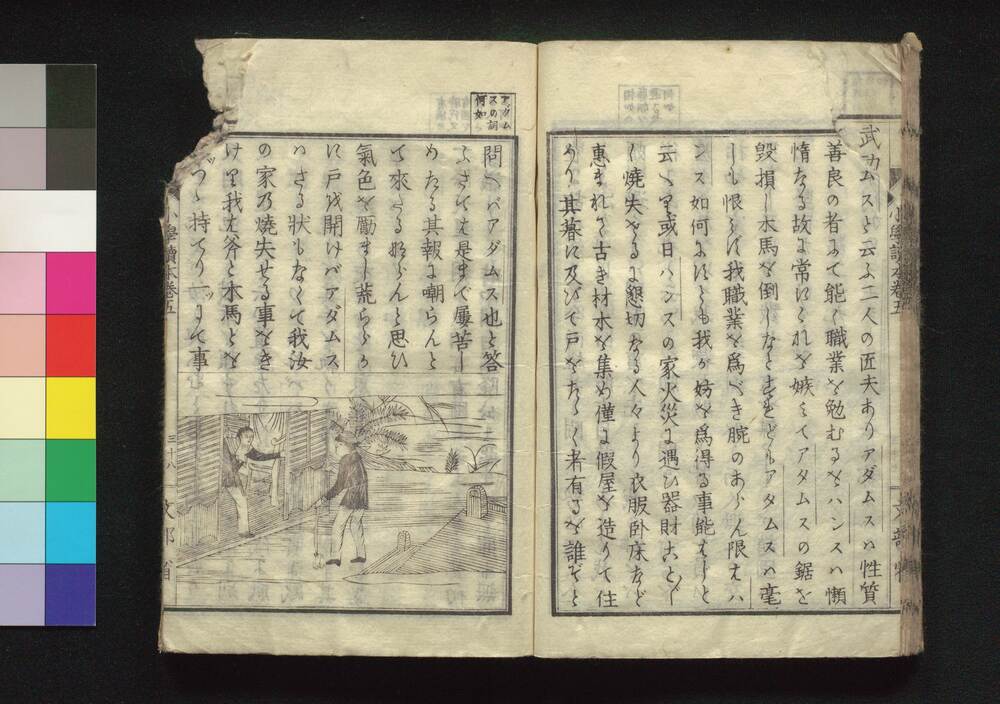 武カムスと云ふ二人の匠夫ありアダムスハ性質
善良の者にて能く職業を勉むるをハンスハ懶
惰なる故に常にこれを嫉みてアタムスの鋸を
毀損し木馬を倒しなと すれどもアタムスハ毫
しも恨らに我職業を為べき腕のあらん限えハ
ンス如何にすとも我が妨を為得る事能えじと
云へり或日ハンスの家火災に遇ひ器財ことごとく
焼失せるに懇切なる人々より衣服卧床など
惠まれて古き材木を集め僅に假屋を造りて住
めり其暮に及びて戸をたたく者有るを誰ぞと
アダム
スの詞
何如
問へバアダムス也と答
ふさてえ是まで屢苦し
めたる其報に嘲らんと
て來たるならんと思ひ
氣色を勵まし荒ららか
に戸を開けバアダムス
ハさる状もなくて我汝
の家の燒失せる事をき
けり我え斧と木馬とを
二ツづつ持てり一ツにて事
小學讀本卷五
三十八
文部省